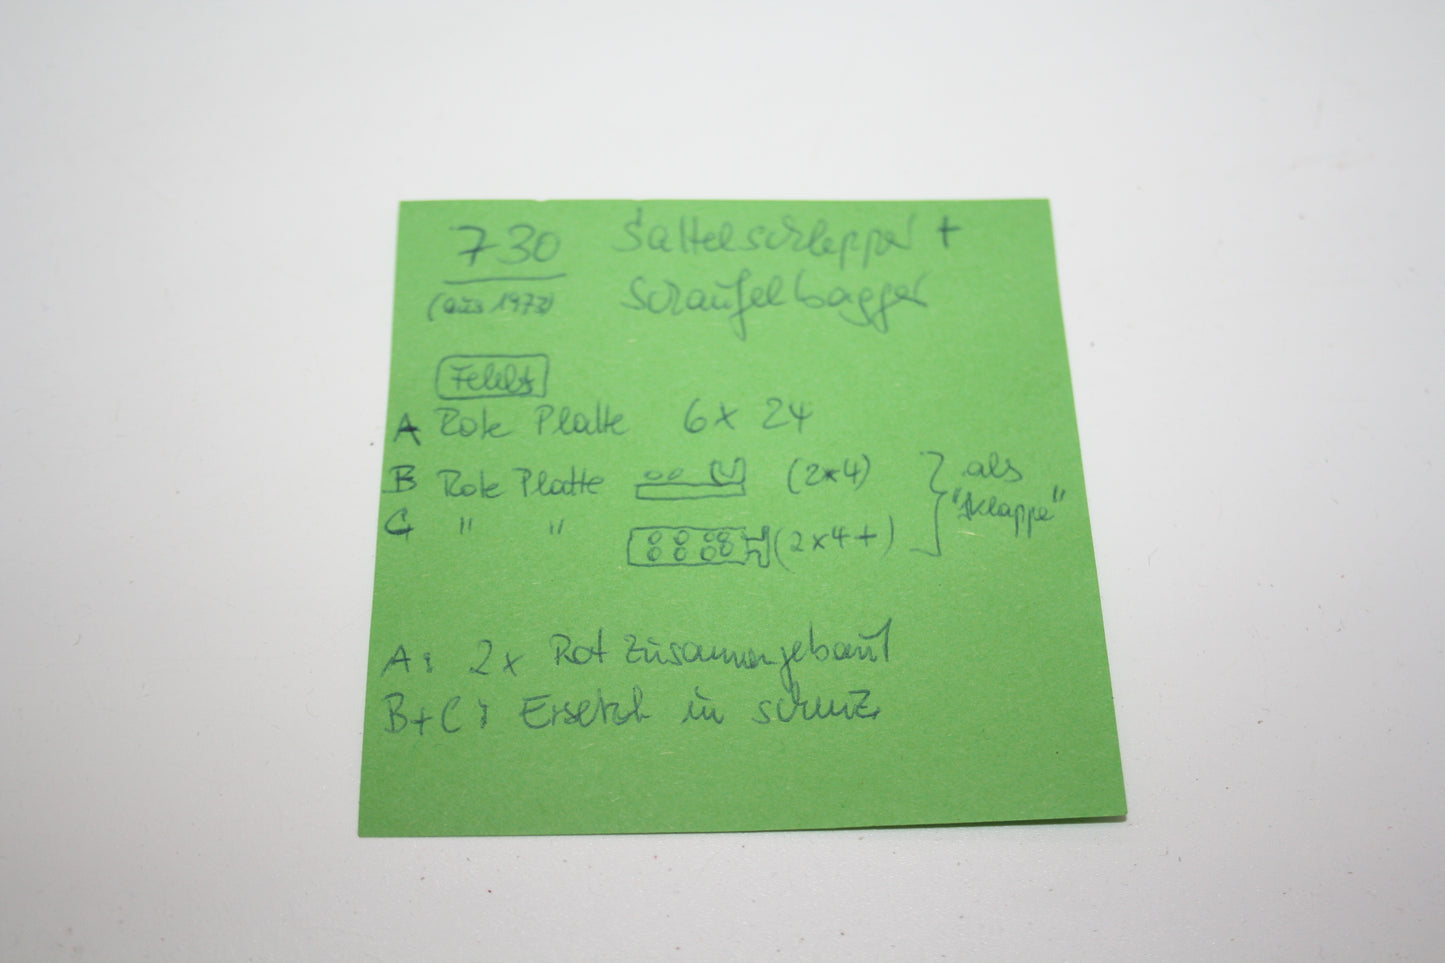 730 Sattelschlepper +
(aus 1973) Schaufelbagger
Fehlt
A Rote Platte 6x24
B Rote Platte (2x4) als
C " " (2x4+) "Klappe"
A: 2x Rot zusammengebaut
B+C: Ersetzt in schwz.